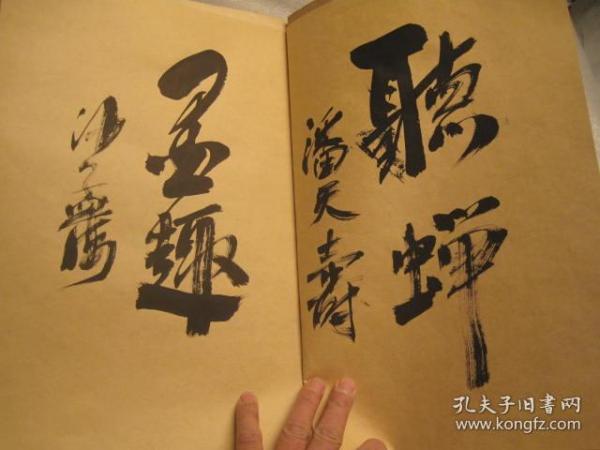 聽蟬
潘天壽
墨趣
孔夫子旧書网
www.kongfz.com